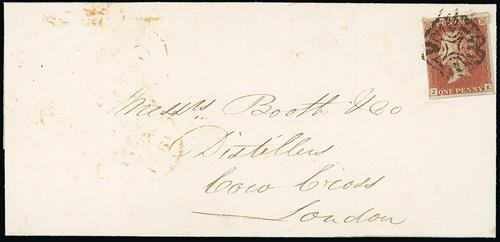 Mess.rs Booth & Co
Distillers
Cow Cross
London
J ONE PENNY E